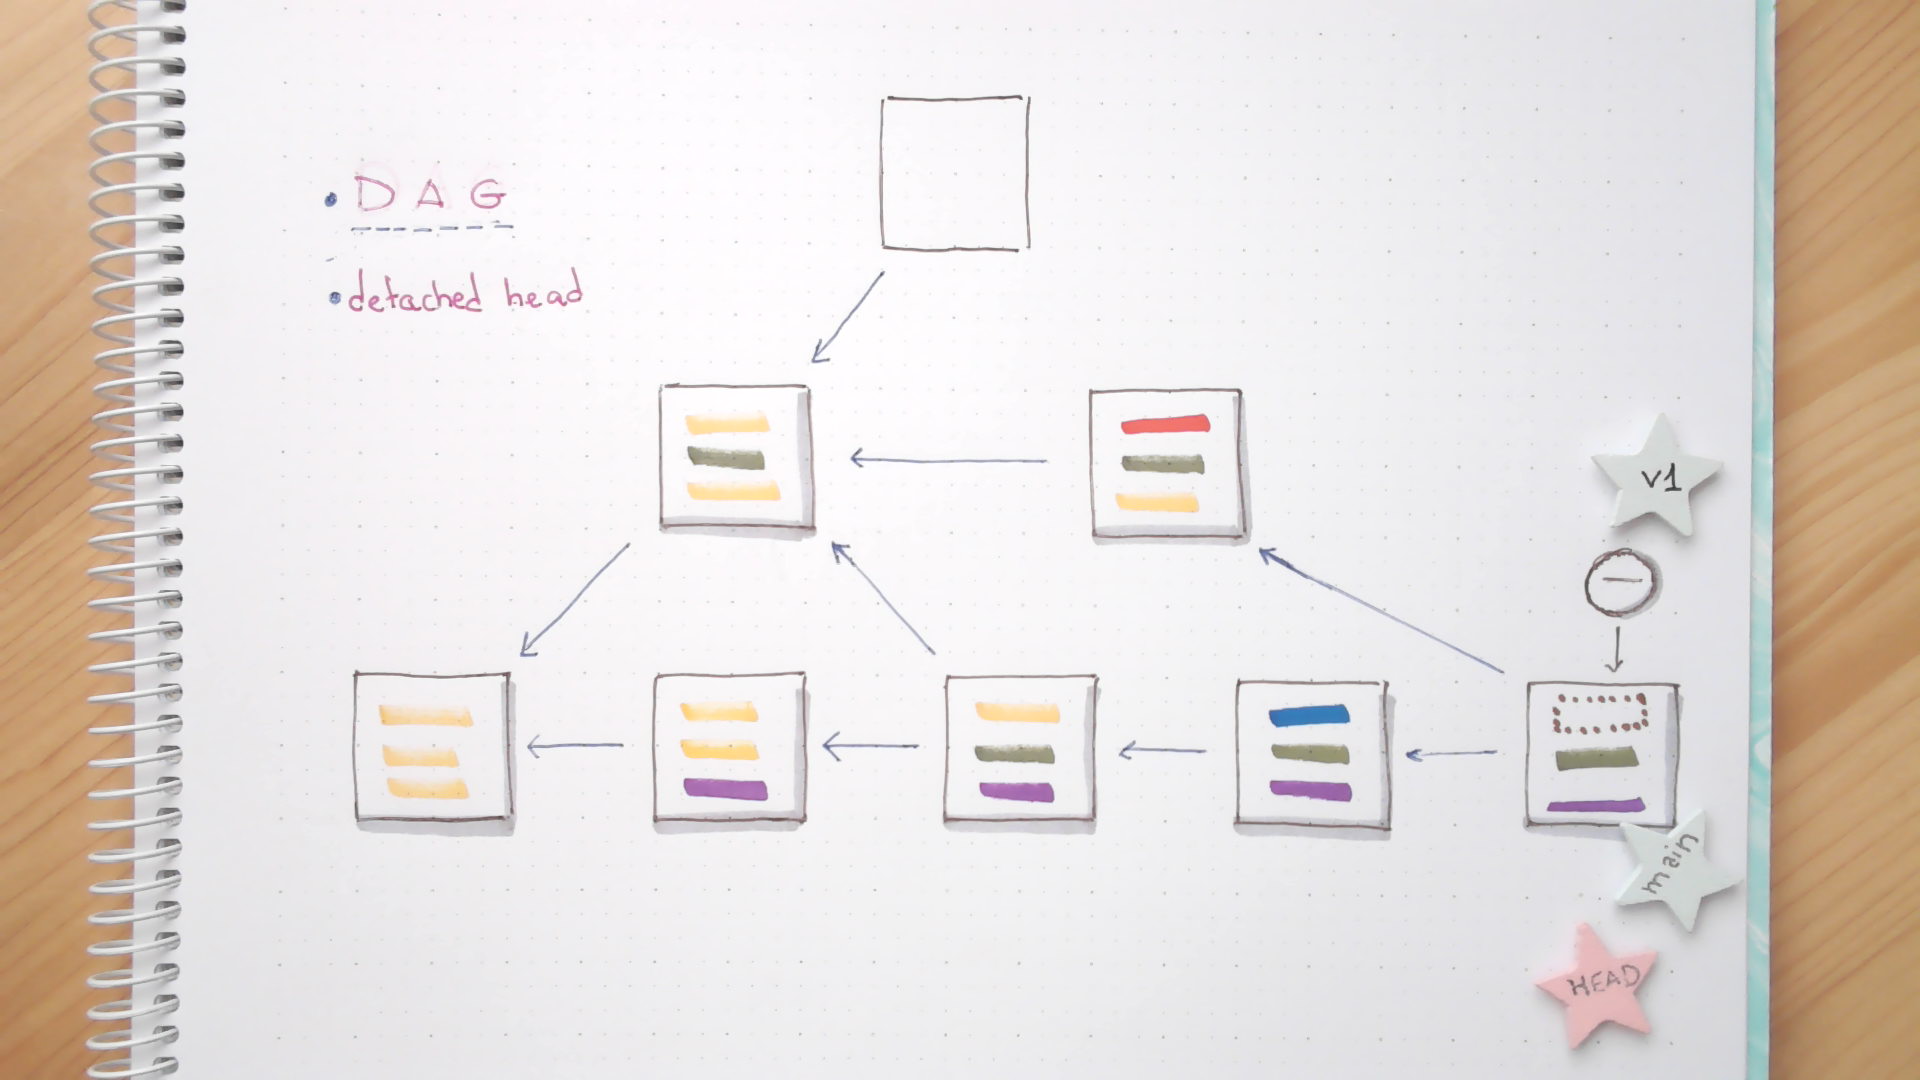 DAG
detached head
v1
main
HEAD